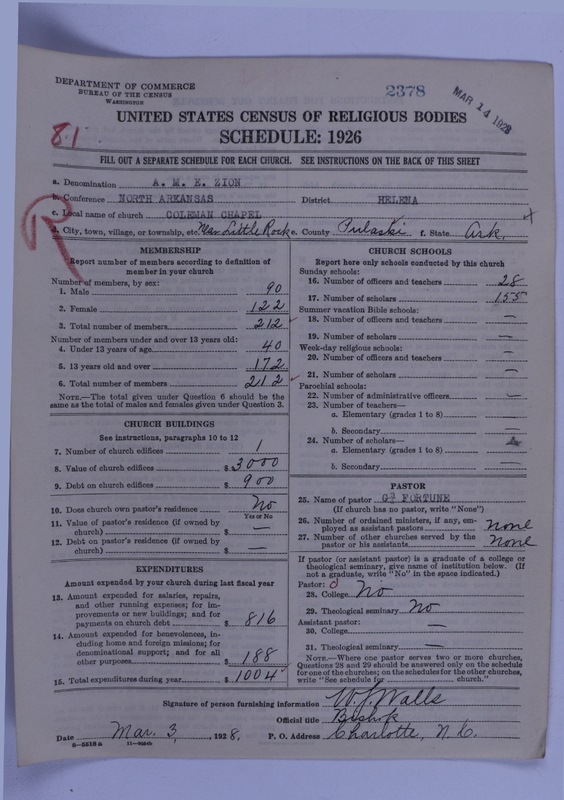 DEPARTMENT OF COMMERCE
BUREAU OF THE CENSUS
WASHINGTON
2378
MAR 14 1928
UNITED STATES CENSUS OF RELIGIOUS BODIES
81
SCHEDULE: 1926
FILL OUT A SEPARATE SCHEDULE FOR EACH CHURCH. SEE INSTRUCTIONS ON THE BACK OF THIS SHEET
a. Denomination A. M. E. ZION
b. Conference NORTH ARKANSAS District HELENA
c. Local name of church COLEMAN CHAPEL
d. City, town, village, or township, etc. Little Rock e. County Pulaski f. State Ark.
R
MEMBERSHIP
Report number of members according to definition of member in your church
Number of members, by sex:
1. Male 90
2. Female 122
3. Total number of members 212
Number of members under and over 13 years old:
4. Under 13 years of age 40
5. 13 years old and over 172
6. Total number of members 212
NOTE.—The total given under Question 6 should be the same as the total of males and females given under Question 3.
CHURCH BUILDINGS
See instructions, paragraphs 10 to 12
7. Number of church edifices 1
8. Value of church edifices $ 3000
9. Debt on church edifices $ 900
10. Does church own pastor's residence No
Yes or No
11. Value of pastor's residence (if owned by church) $ —
12. Debt on pastor's residence (if owned by church) $ —
EXPENDITURES
Amount expended by your church during last fiscal year
13. Amount expended for salaries, repairs, and other running expenses; for improvements or new buildings; and for payments on church debt $ 816
14. Amount expended for benevolences, including home and foreign missions; for denominational support; and for all other purposes $ 188
15. Total expenditures during year $ 1004
CHURCH SCHOOLS
Report here only schools conducted by this church
Sunday schools:
16. Number of officers and teachers 28
17. Number of scholars 155
Summer vacation Bible schools:
18. Number of officers and teachers —
19. Number of scholars —
Week-day religious schools:
20. Number of officers and teachers —
21. Number of scholars —
Parochial schools:
22. Number of administrative officers —
23. Number of teachers—
a. Elementary (grades 1 to 8) —
b. Secondary —
24. Number of scholars—
a. Elementary (grades 1 to 8)
b. Secondary —
PASTOR
25. Name of pastor FORTUNE
(If church has no pastor, write "None")
26. Number of ordained ministers, if any, employed as assistant pastors none
27. Number of other churches served by the pastor or his assistants none
If pastor (or assistant pastor) is a graduate of a college or theological seminary, give name of institution below. (If not a graduate, write "No" in the space indicated.)
Pastor: 0
28. College No
29. Theological seminary No
Assistant pastor:
30. College —
31. Theological seminary —
NOTE.—Where one pastor serves two or more churches, Questions 28 and 29 should be answered only on the schedule for one of the churches; on the schedules for the other churches, write "See schedule for church."
Signature of person furnishing information W. J. Walls
Official title Bishop
Date Mar. 3, 1928. P. O. Address Charlotte, N. C.